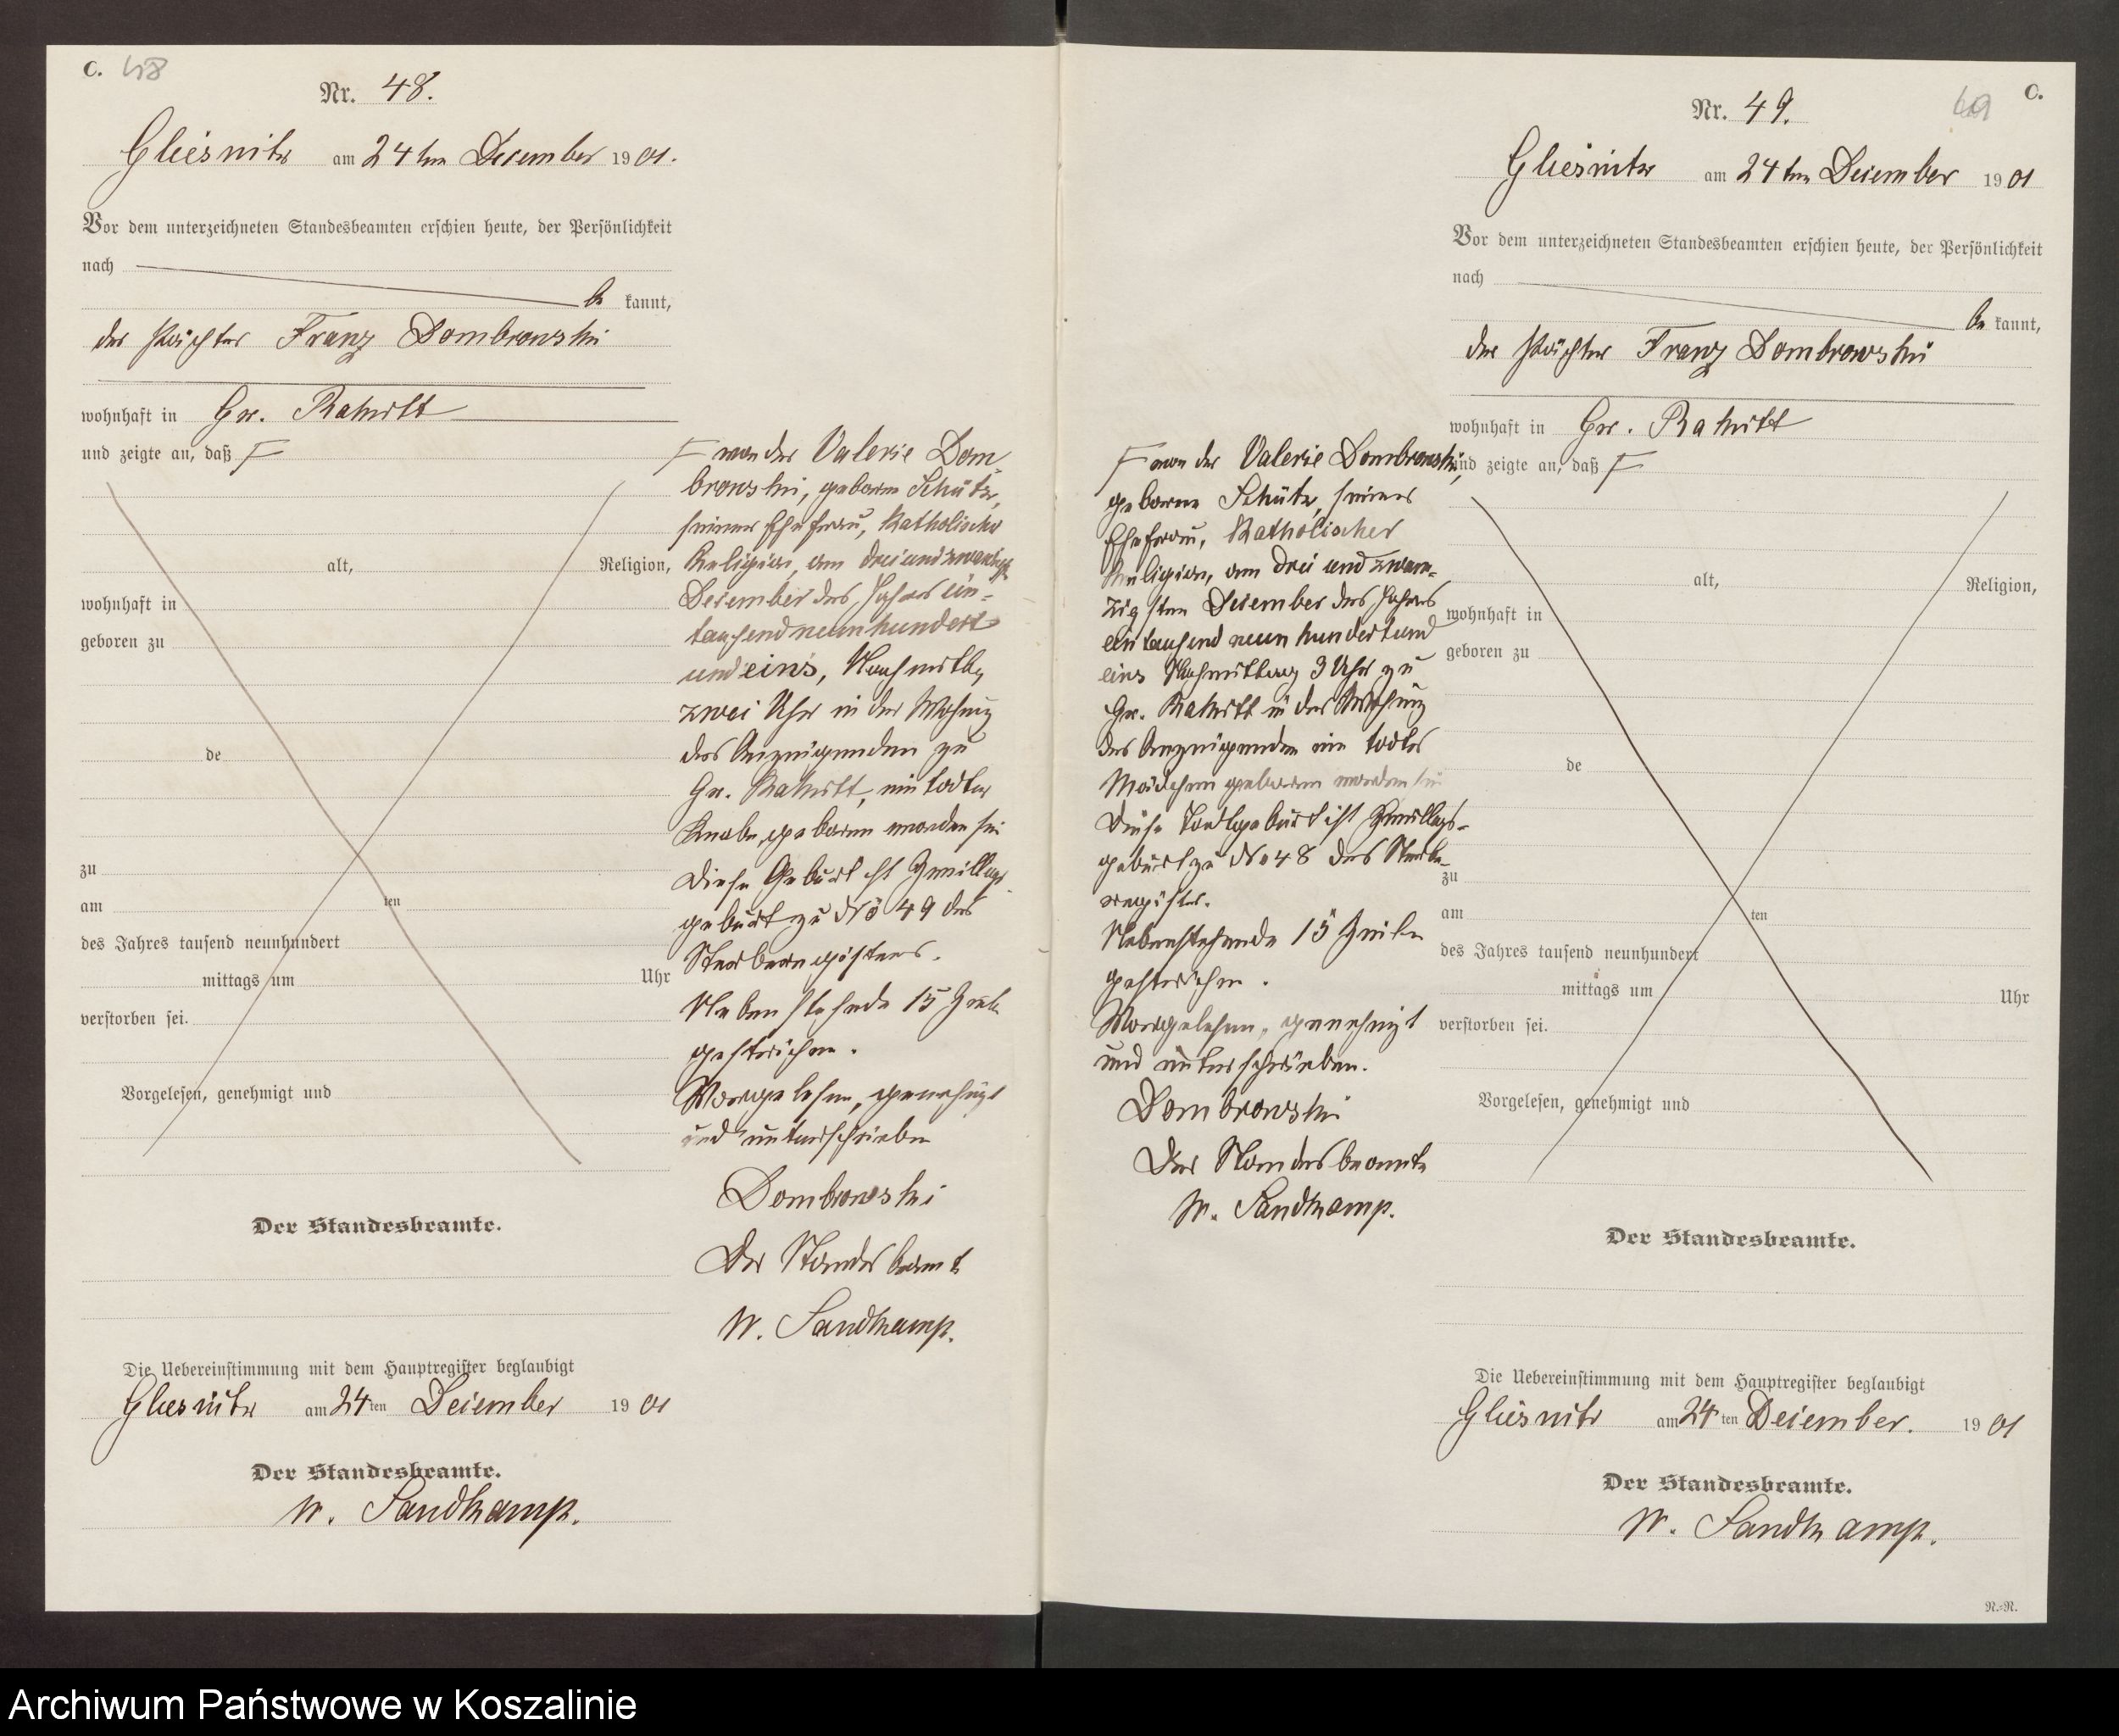 C. 48
Nr. 48.
Gliesnitz am 24ten Dezember 1901.
Vor dem unterzeichneten Standesbeamten erschien heute, der Persönlichkeit
nach
be kannt,
der Pächter Franz Dombrowski
wohnhaft in Gr. Rakitt
und zeigte an, daß Γ
alt, Religion,
wohnhaft in
geboren zu
de
zu
am ten
des Jahres tausend neunhundert
mittags um Uhr
verstorben sei.
Vorgelesen, genehmigt und
Der Standesbeamte.
Γ von der Valerie Dom
browski, geborne Schütz,
seiner Ehefrau, Katholischer
Religion, am drei und zwanzigst
Dezember des Jahres ein-
tausend neunhundert
und eins, Nachmittag
zwei Uhr in der Wohnung
des Anzeigenden zu
Gr. Rakitt, ein todter
Knabe geboren worden sei
Diese Geburt ist Zwillings
geburt zu No 49 des
Sterberegisters.
Nebenstehende 15 Zeilen
gestrichen.
Vorgelesen, genehmigt
und unterschrieben
Dombrowski
Der Standesbeamte
W. Sandkamp.
Die Uebereinstimmung mit dem Hauptregister beglaubigt
Gliesnitz am 24ten Dezember 1901
Der Standesbeamte.
W. Sandkamp.
C.
49
Nr. 49.
Gliesnitz am 24ten Dezember 1901
Vor dem unterzeichneten Standesbeamten erschien heute, der Persönlichkeit
nach
be kannt,
der Pächter Franz Dombrowski
wohnhaft in Gr. Rakitt
und zeigte an, daß Γ
alt, Religion,
wohnhaft in
geboren zu
de
zu
am ten
des Jahres tausend neunhundert
mittags um Uhr
verstorben sei.
Vorgelesen, genehmigt und
Der Standesbeamte.
Γ von der Valerie Dombrowski,
geborne Schütz, seiner
Ehefrau, Katholischer
Religion, am drei und zwan-
zigsten Dezember des Jahres
ein tausend neun hundert und
eins Nachmittag 3 Uhr zu
Gr. Rakitt in der Wohnung
des Anzeigenden ein todtes
Mädchen geboren worden sei
Diese Todtgeburt ist Zwillings-
geburt zu No 48 des Sterbe-
register.
Nebenstehende 15 Zeilen
gestrichen.
Vorgelesen, genehmigt
und unterschrieben.
Dombrowski
Der Standesbeamte
W. Sandkamp.
Die Uebereinstimmung mit dem Hauptregister beglaubigt
Gliesnitz am 24ten Dezember. 1901
Der Standesbeamte.
W. Sandkamp.
N.-N.
Archiwum Państwowe w Koszalinie